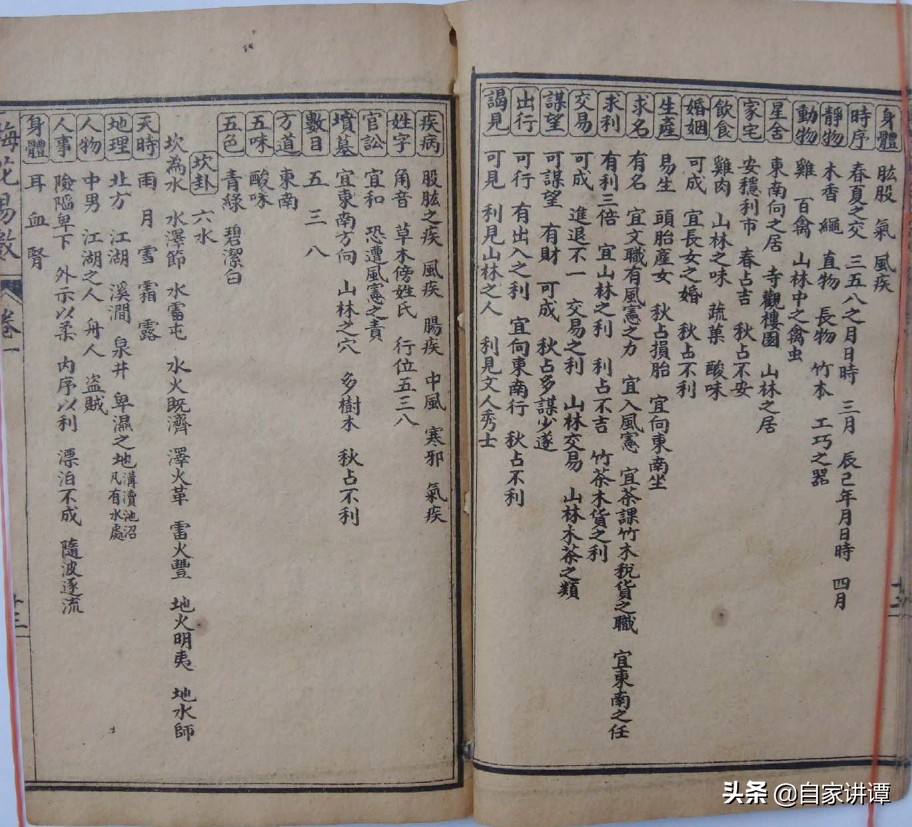 身體 肱股 氣 風疾
時序 春夏之交 三五八之月日時 三月 辰巳年月日時 四月
靜物 木香 繩 直物 長物 竹木 工巧之器
動物 雞 百禽 山林中之禽虫
星舍 東南向之居 寺觀樓園 山林之居
家宅 安穩利市 春占吉 秋占不安
飲食 雞肉 山林之味 蔬菓 酸味
婚姻 可成 宜長女之婚 秋占不利
生產 易生 頭胎産女 秋占損胎 宜向東南坐
求名 有名 宜文職有風憲之力 宜入風憲 宜茶課竹木稅貨之職 宜東南之任
求利 有利三倍 宜山林之利 利占不吉 竹茶木貨之利
交易 可成 進退不一 交易之利 山林交易 山林木茶之類
謀望 可謀望 有財 可成 秋占多謀少遂
出行 可行 有出入之利 宜向東南行 秋占不利
謁見 可見 利見山林之人 利見文人秀士
疾病 股肱之疾 風疾 腸疾 中風 寒邪 氣疾
姓字 角音 草木傍姓氏 行位五三八
官訟 宜和 恐遭風憲之責
墳墓 宜東南方向 山林之穴 多樹木 秋占不利
數目 五 三 八
方道 東南
五味 酸味
五色 青綠 碧潔白
坎卦 六水
坎為水 水澤節 水雷屯 水火既濟 澤火革 雷火豐 地火明夷 地水師
天時 雨 月 雪 霜 露
地理 北方 江湖 溪澗 泉井 卑濕之地 溝瀆池沼凡有水處
人物 中男 江湖之人 舟人 盜賊
人事 險陷卑下 外示以柔 内序以利 漂泊不成 隨波逐流
身體 耳 血 腎
梅花易數 卷一 十三
头条 @自家讲谭